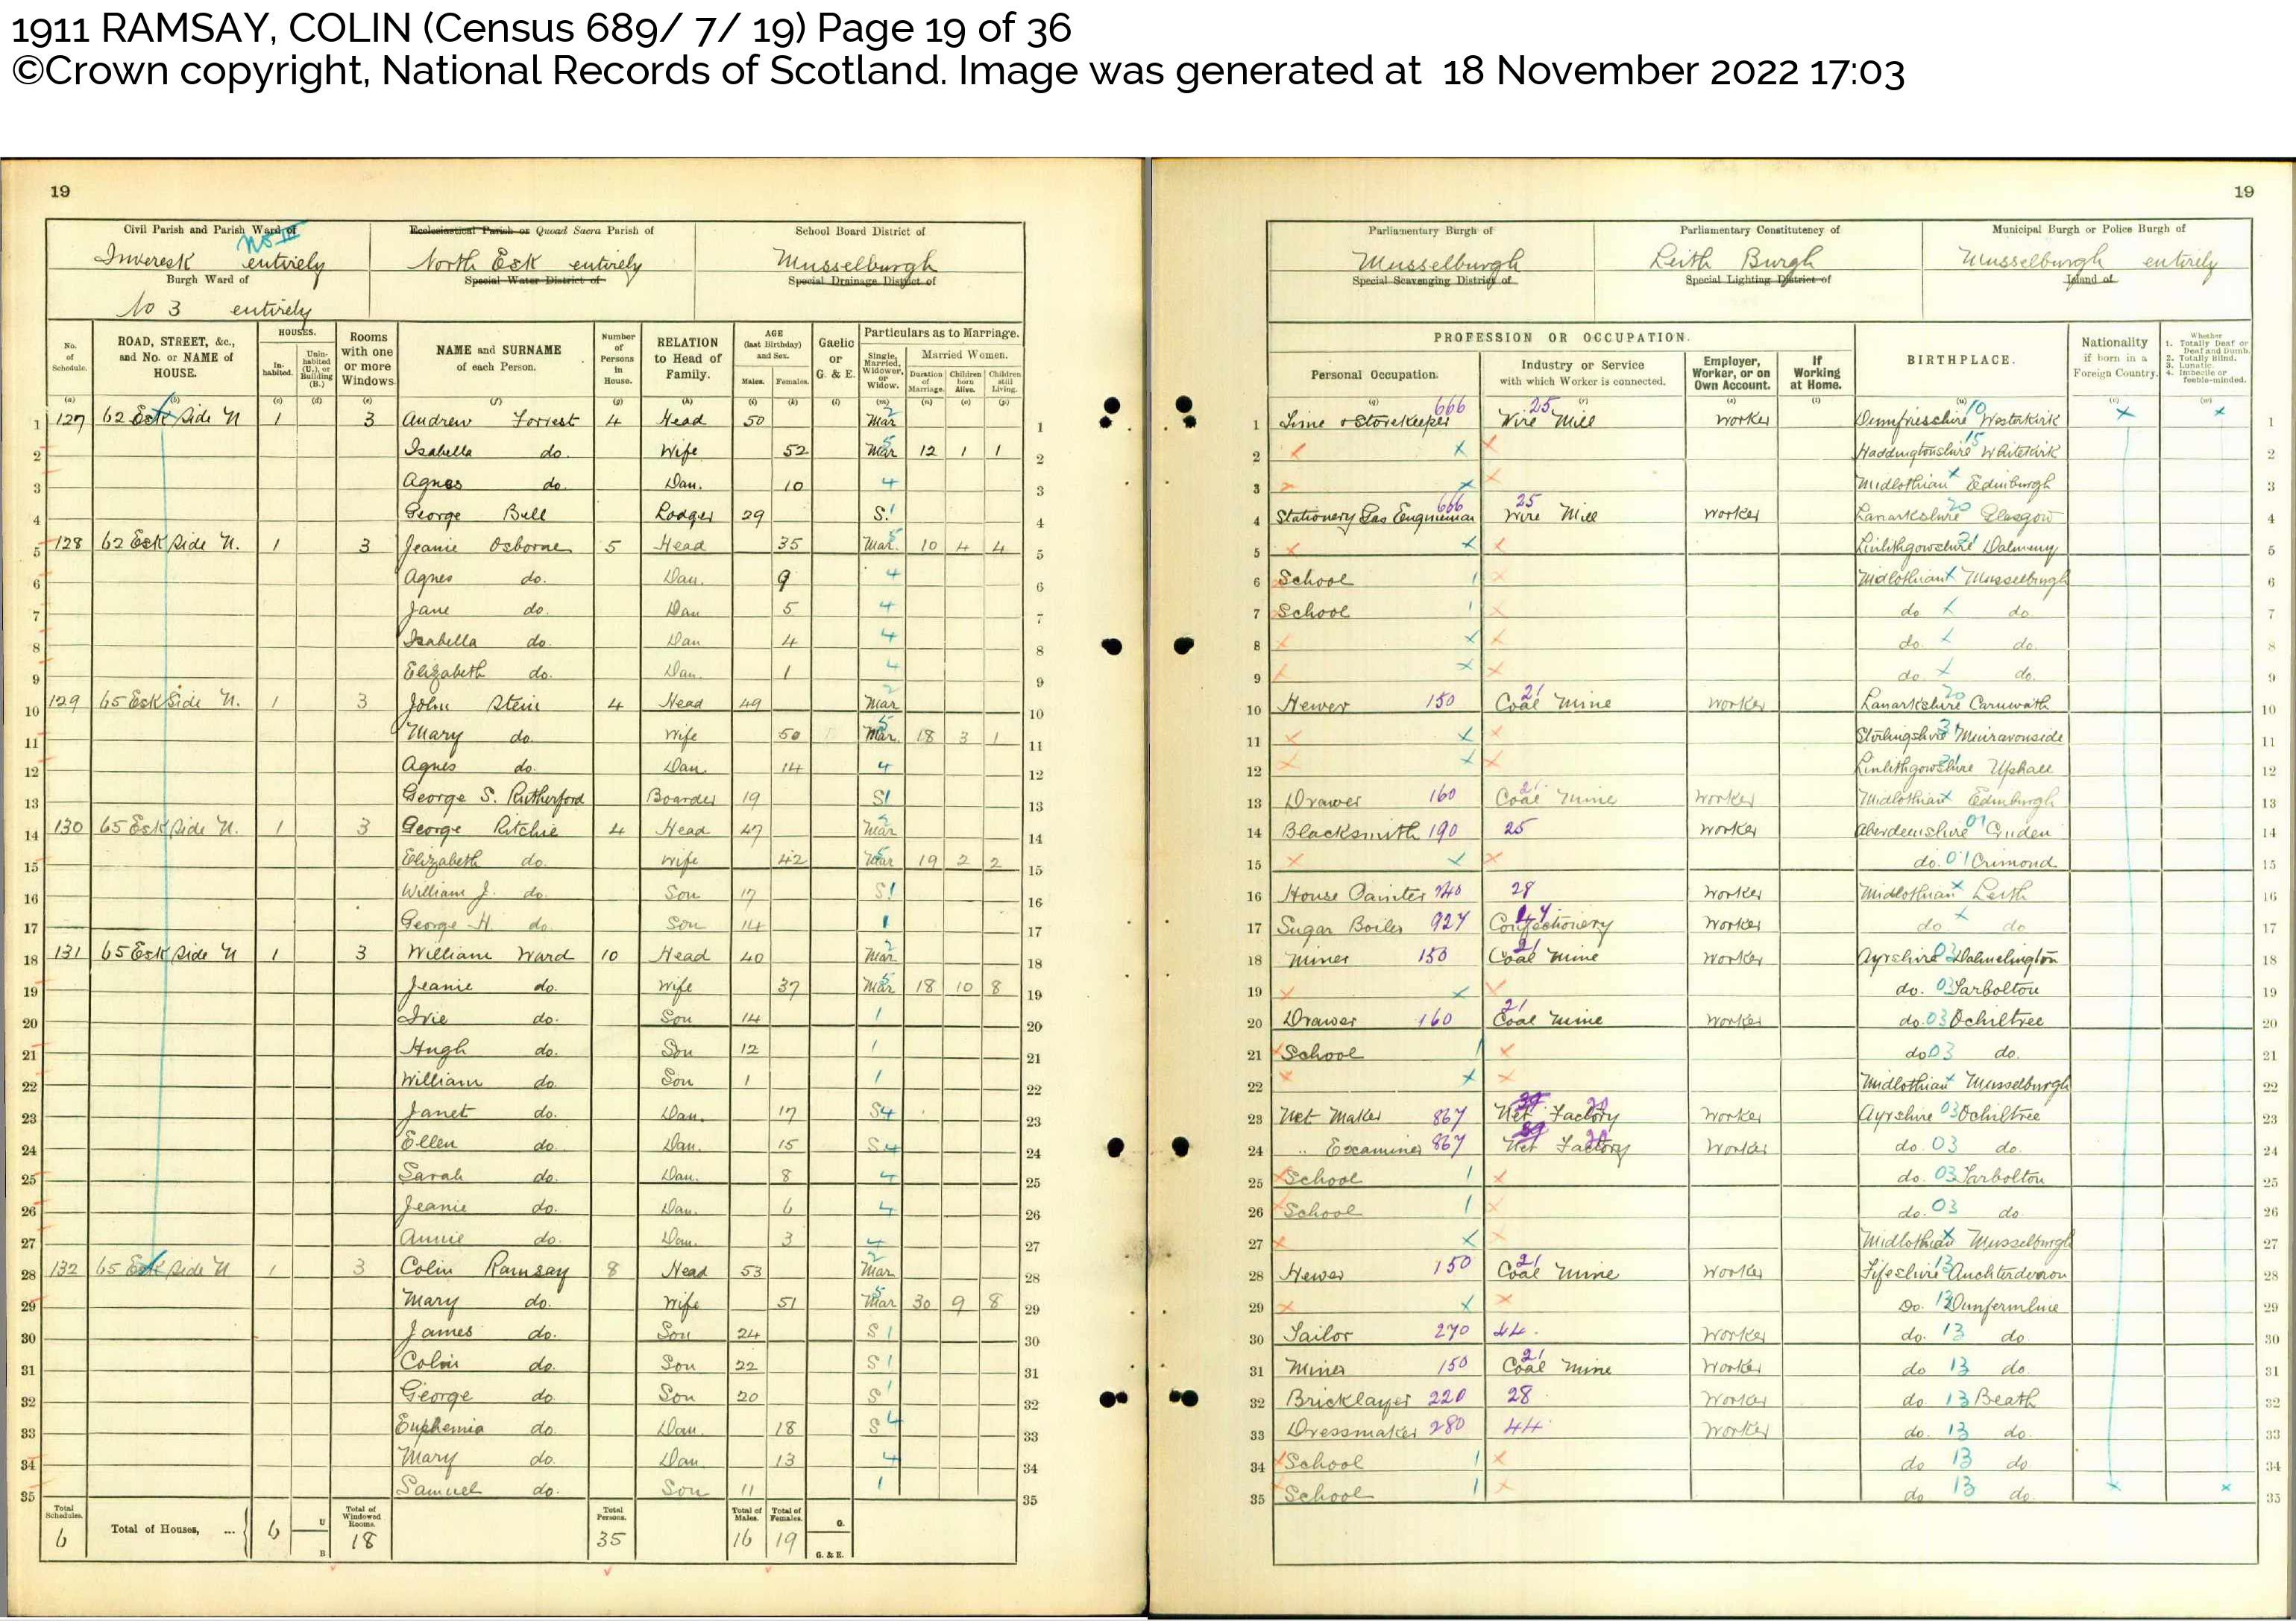 1911 RAMSAY, COLIN (Census 689/ 7/ 19) Page 19 of 36
©Crown copyright, National Records of Scotland. Image was generated at 18 November 2022 17:03
19
Civil Parish and Parish Ward of
No III
Inveresk entirely
Burgh Ward of
No 3 entirely
Ecclesiastical Parish or Quoad Sacra Parish of
North Esk entirely
Special Water District of
School Board District of
Musselburgh
Special Drainage District of
No. of Schedule. ROAD, STREET, &c., and No. or NAME of HOUSE. HOUSES. Inhabited. Uninhabited (U.), or Building (B.) Rooms with one or more Windows. NAME and SURNAME of each Person. Number of Persons in House. RELATION to Head of Family. AGE (last Birthday) and Sex. Males. Females. Gaelic or G. & E. Particulars as to Marriage. Single, Married, Widower, or Widow. Married Women. Duration of Marriage. Children born Alive. Children still Living.
1 127 62 Esk Side N 1 3 Andrew Forrest 4 Head 50 Mar 2 1
2 Isabella do. Wife 52 Mar 5 12 1 1 2
3 Agnes do. Dau. 10 4 3
4 George Bell Lodger 29 S. 1 4
5 128 62 Esk Side N. 1 3 Jeanie Osborne 5 Head 35 Mar. 5 10 4 4 5
6 Agnes do. Dau. 9 4 6
7 Jane do. Dau 5 4 7
8 Isabella do. Dau 4 4 8
9 Elizabeth do. Dau. 1 4 9
10 129 65 Esk Side N. 1 3 John Stein 4 Head 49 Mar 2 10
11 Mary do. Wife 50 Mar. 5 18 3 1 11
12 Agnes do. Dau. 14 4 12
13 George S. Rutherford Boarder 19 S 1 13
14 130 65 Esk Side N. 1 3 George Ritchie 4 Head 47 Mar 2 14
15 Elizabeth do. Wife 42 Mar 5 19 2 2 15
16 William J. do. Son 17 S 1 16
17 George H. do. Son 14 1 17
18 131 65 Esk Side N 1 3 William Ward 10 Head 40 Mar 2 18
19 Jeanie do. Wife 37 Mar 5 18 10 8 19
20 Ivie do. Son 14 1 20
21 Hugh do. Son 12 1 21
22 William do. Son 1 1 22
23 Janet do. Dau. 17 S 4 23
24 Ellen do. Dau. 15 S 4 24
25 Sarah do. Dau. 8 4 25
26 Jeanie do. Dau. 6 4 26
27 Annie do. Dau. 3 4 27
28 132 65 Esk Side N 1 3 Colin Ramsay 8 Head 53 Mar 2 28
29 Mary do. Wife 51 Mar 5 30 9 8 29
30 James do. Son 24 S 1 30
31 Colin do. Son 22 S 1 31
32 George do. Son 20 S 1 32
33 Euphemia do. Dau. 18 S 4 33
34 Mary do. Dau. 13 4 34
35 Samuel do. Son 11 1 35
Total Schedules. 6 Total of Houses, ... 6 U B Total of Windowed Rooms. 18 Total Persons. 35 Total of Males. 16 Total of Females. 19 G. G. & E.
19
Parliamentary Burgh of
Musselburgh
Special Scavenging District of
Parliamentary Constituency of
Leith Burgh
Special Lighting District of
Municipal Burgh or Police Burgh of
Musselburgh entirely
Island of
PROFESSION OR OCCUPATION. Personal Occupation. Industry or Service with which Worker is connected. Employer, Worker, or on Own Account. If Working at Home. BIRTHPLACE. Nationality if born in a Foreign Country. Whether 1. Totally Deaf or Deaf and Dumb. 2. Totally Blind. 3. Lunatic. 4. Imbecile or feeble-minded.
1 Time & Storekeeper 666 25 Wire Mill Worker Dumfriesshire 10 Westerkirk 1
2 Haddingtonshire 15 Whitekirk 2
3 Midlothian Edinburgh 3
4 Stationery Gas Engineman 666 25 Wire Mill Worker Lanarkshire 20 Glasgow 4
5 Linlithgowshire 21 Dalmeny 5
6 School 1 Midlothian Musselburgh 6
7 School 1 do do. 7
8 do. do. 8
9 do. do. 9
10 Hewer 150 21 Coal Mine Worker Lanarkshire 20 Carnwath 10
11 Stirlingshire Muiravonside 11
12 Linlithgowshire 21 Uphall 12
13 Drawer 160 21 Coal Mine Worker Midlothian Edinburgh 13
14 Blacksmith 190 25 Worker Aberdeenshire 01 Cruden 14
15 do. 01 Crimond 15
16 House Painter 240 28 Worker Midlothian Leith 16
17 Sugar Boiler 927 Confectionery Worker do do 17
18 Miner 150 21 Coal Mine Worker Ayrshire 03 Dalmelington 18
19 do. 03 Tarbolton 19
20 Drawer 160 21 Coal Mine Worker do. 03 Ochiltree 20
21 School 1 do 03 do. 21
22 Midlothian Musselburgh 22
23 Net Maker 867 Net Factory Worker Ayrshire 03 Ochiltree 23
24 " Examiner 867 Net Factory Worker do. 03 do. 24
25 School 1 do. 03 Tarbolton 25
26 School 1 do. 03 do 26
27 Midlothian Musselburgh 27
28 Hewer 150 21 Coal Mine Worker Fifeshire 13 Auchterderran 28
29 Do. 13 Dunfermline 29
30 Tailor 270 44. Worker do. 13 do 30
31 Miner 150 21 Coal Mine Worker do 13 do. 31
32 Bricklayer 220 28 Worker do 13 Beath 32
33 Dressmaker 280 44 Worker do. 13 do. 33
34 School 1 do 13 do 34
35 School 1 do 13 do. 35